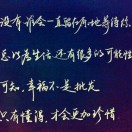 没有谁会一直留在原地等待你
总以为生活还有很多的可能性
可知，幸福不是批发
只有懂得，才会更加珍惜